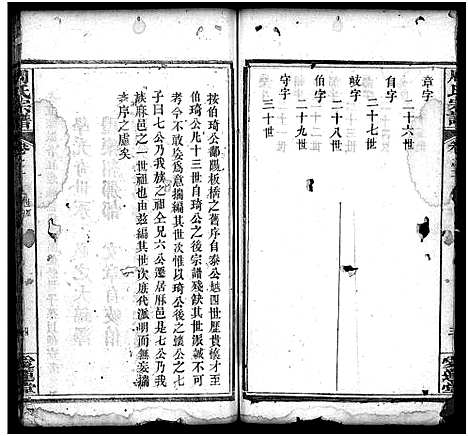 周氏宗譜
章字
二十六世
岐字
二十七世
伯字
二十八世
宥字
二十九世
守字
三十世
三
愛蓮堂
按伯琦公鄱陽板橋之舊序自泰公四世歷貴懷才
伯琦公凡十三世自琦公之後宗譜殘缺其世派誠不可
考今不敢妄爲意揣編其世次惟以琦公之後懷公之七
子曰七公乃我族之始祖兄六公遷居麻邑是七公乃我
族麻邑之一世祖也由茲編其世次庶代派明而無妄揣
族序之虛矣
周氏宗譜
四
愛蓮堂